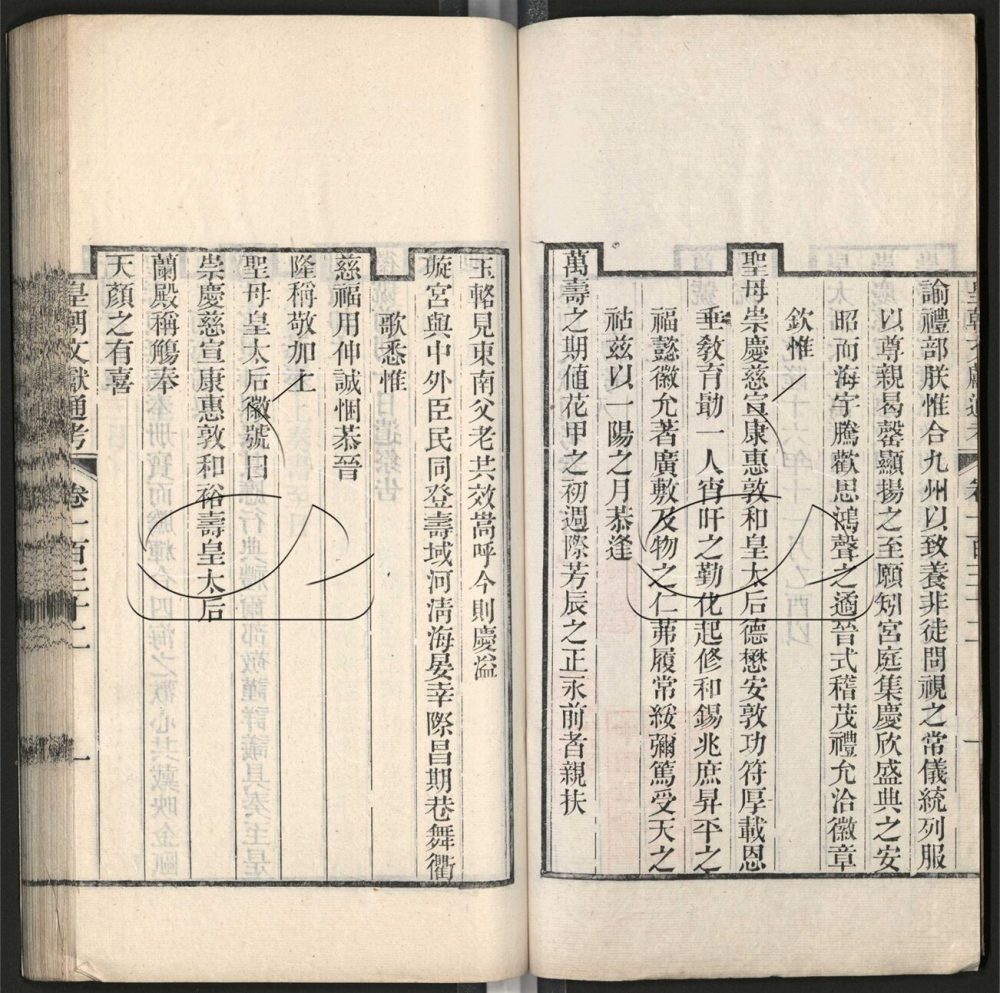 諭禮部朕惟合九州以致養非徒問視之常儀統列服
以尊親曷罄顯揚之至願矧宮庭集慶欣盛典之安
昭而海宇騰歡思鴻聲之遹晉式稽茂禮允洽徽章
欽惟
聖母崇慶慈宣康惠敦和皇太后德懋安敦功符厚載恩
垂敎育勖一人宵旰之勤化起修和錫兆庶昇平之
福懿徽允著廣敷及物之仁茀履常綏彌篤受天之
祜茲以一陽之月恭逢
萬壽之期值花甲之初週際芳辰之正永前者親扶
玉輅見東南父老共效嵩呼今則慶溢
璇宮與中外臣民同登壽域河淸海晏幸際昌期巷舞衢
歌悉惟
慈福用伸誠悃恭晉
隆稱敬加上
聖母皇太后徽號曰
崇慶慈宣康惠敦和裕壽皇太后
蘭殿稱觴奉
天顏之有喜
皇朝文獻通考 卷一百三十二 一